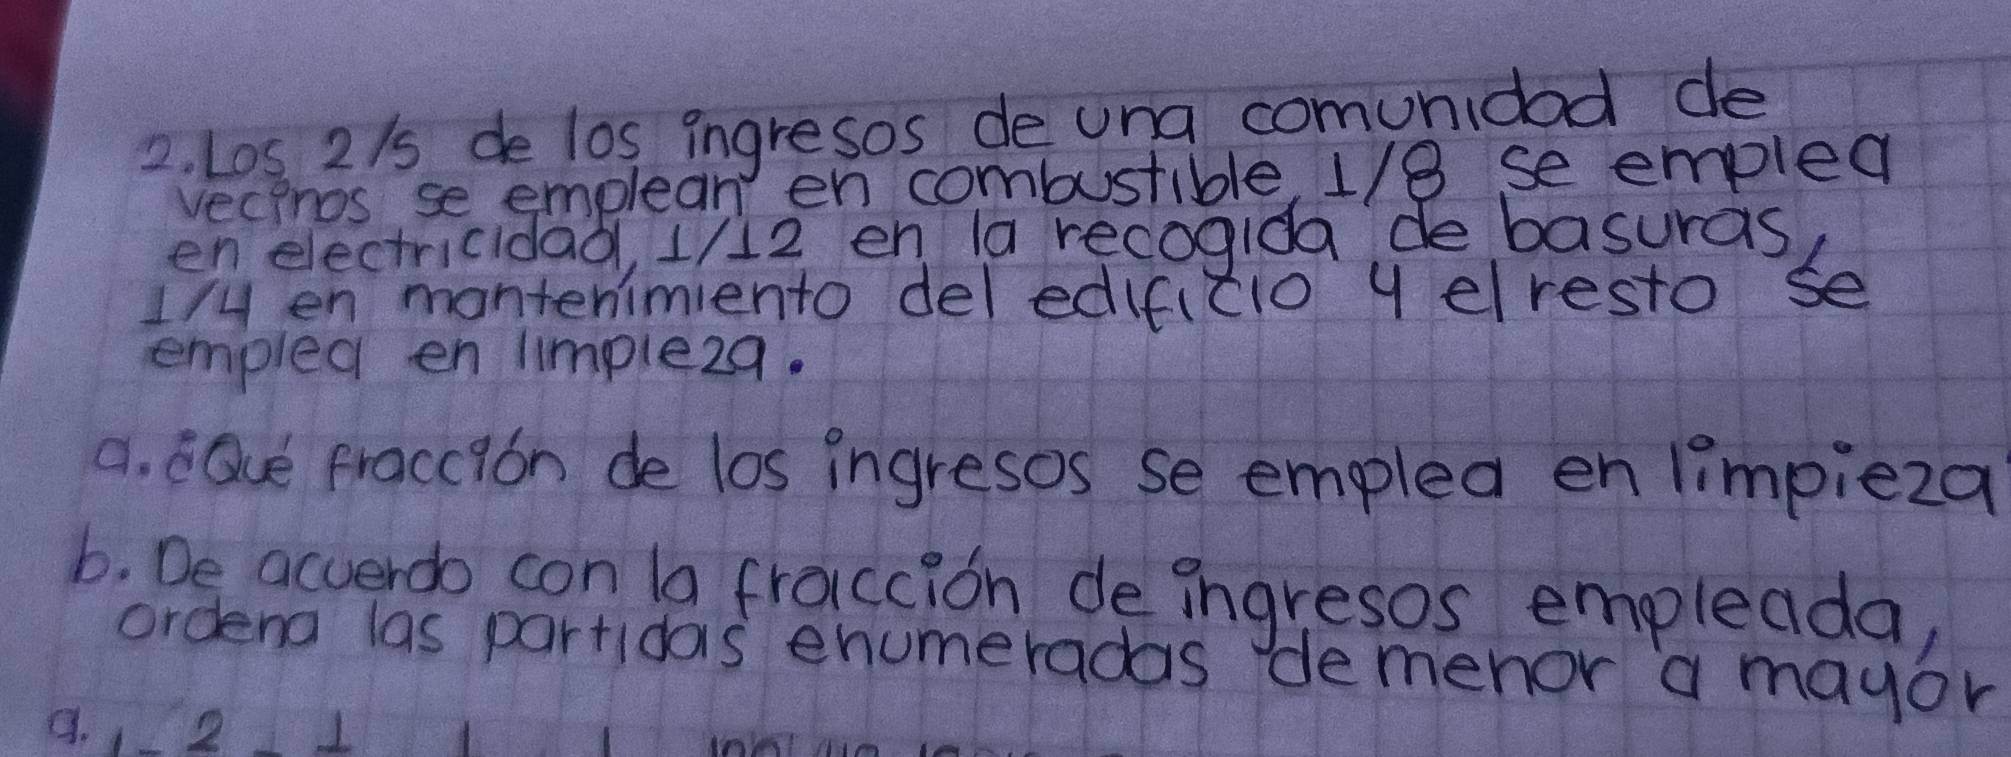 2. Los 2/5 de los ingresos de una comunidad de
vecinos se emplean en combustible, 1/8 se emplea
en electricidad, 1/12 en la recogida de basuras,
1/4 en mantenimiento del edificio y el resto se
emplea en limpieza.
a. ¿Qué fracción de los ingresos se emplea en limpieza
b. De acuerdo con la fracción de ingresos empleada,
ordena las partidas enumeradas de menor a mayor
a. 1 - 2 - 1